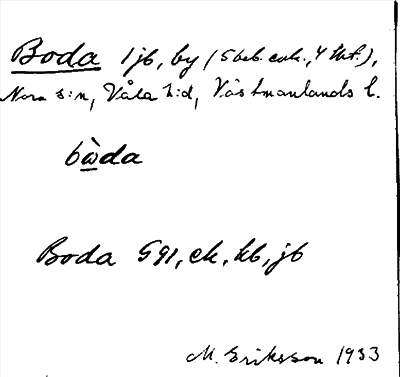 Boda 1 jb, by (5 beb. enh., 4 tkt.),
Nora s:n, Våla h:d, Västmanlands l.
bὼda
Boda G91, ek, kb, jb
M. Eriksson 1933